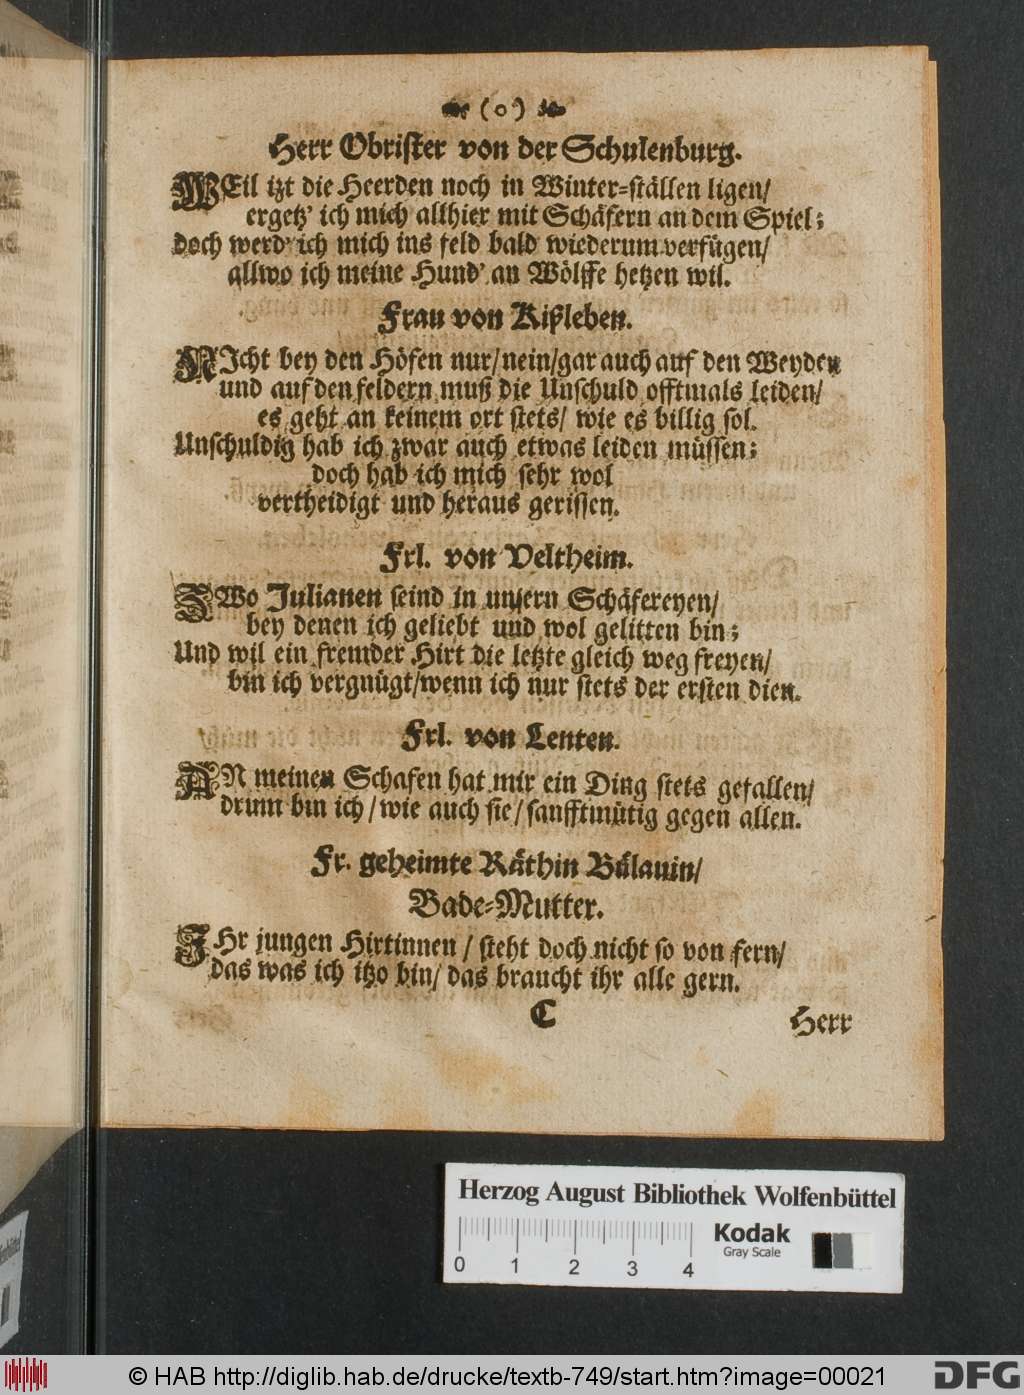 (o)
Herr Obrister von der Schulenburg.
WEil izt die Heerden noch in Winter=ställen ligen/
ergetz' ich mich allhier mit Schäfern an dem Spiel;
doch werd' ich mich ins feld bald wiederum verfügen/
allwo ich meine Hund' an Wölffe hetzen wil.
Frau von Kißleben.
NIcht bey den Höfen nur/nein/gar auch auf den Weyden
und auf den feldern muß die Unschuld offtmals leiden/
es geht an keinem ort stets/ wie es billig sol.
Unschuldig hab ich zwar auch etwas leiden müssen;
doch hab ich mich sehr wol
vertheidigt und heraus gerissen.
Frl. von Veltheim.
ZWo Julianen seind in unsern Schäfereyen/
bey denen ich geliebt und wol gelitten bin;
Und wil ein fremder Hirt die letzte gleich weg freyen/
bin ich vergnügt/wenn ich nur stets der ersten dien.
Frl. von Lenten.
AN meinen Schafen hat mir ein Ding stets gefallen/
drum bin ich/wie auch sie/sanfftmütig gegen allen.
Fr. geheimte Räthin Bülauin/
Bade=Mutter.
IHr jungen Hirtinnen/ steht doch nicht so von fern/
das was ich itzo bin/ das braucht ihr alle gern.
C
Herr
Herzog August Bibliothek Wolfenbüttel
Kodak
Gray Scale
0 1 2 3 4
© HAB http://diglib.hab.de/drucke/textb-749/start.htm?image=00021
DFG